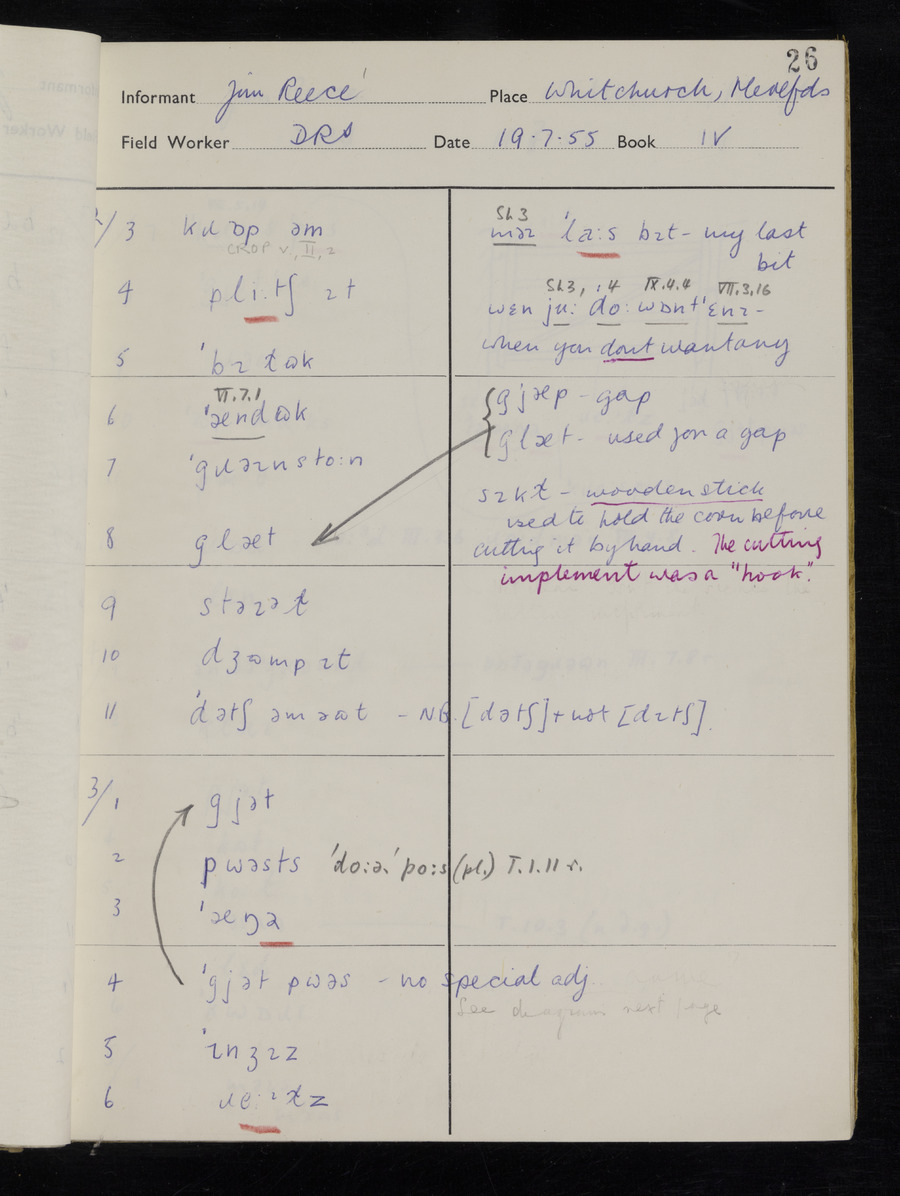 26
Informant Jim Reece Place Whitchurch, Herefds
Field Worker DRS Date 19.7.55 Book IV
2/3 kɹɒp əm
CROP v., II, 2
4 pli:tʃ ɪt
5 'bɪɫʊk
VI.7.1
6 'ændʊk
7 'gɹəɪnsto:n
8 glæt
9 stəɪəɫ
10 dʒʊmp ɪt
11 'dətʃ əməʊt - NB. [dətʃ] + not [dɪtʃ].
3/1 gjət
2 pwəsts 'do:ə.'po:s (pl.) I.1.11 r.
3 'æŋɪ
4 'gjət pwəs - no special adj.
See diagram next page
5 'ɪnʒɪz
6 ɹe:ɪɫz
Sh.3
məɪ 'la:s bɪt - my last
bit
Sh3, :4 IX.4.4 VII.3,16
wɛn ju: do: wɒnt 'ɛnɪ -
when you dont want any
gjæp - gap
glæt - used for a gap
sɪkɫ - wooden stick
used to hold the corn before
cutting it by hand. The cutting
implement was a "hook".